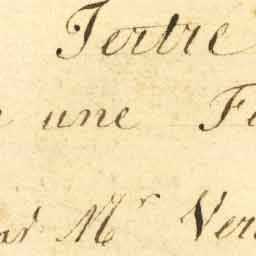 Tertre
une Fe
Mr Ver